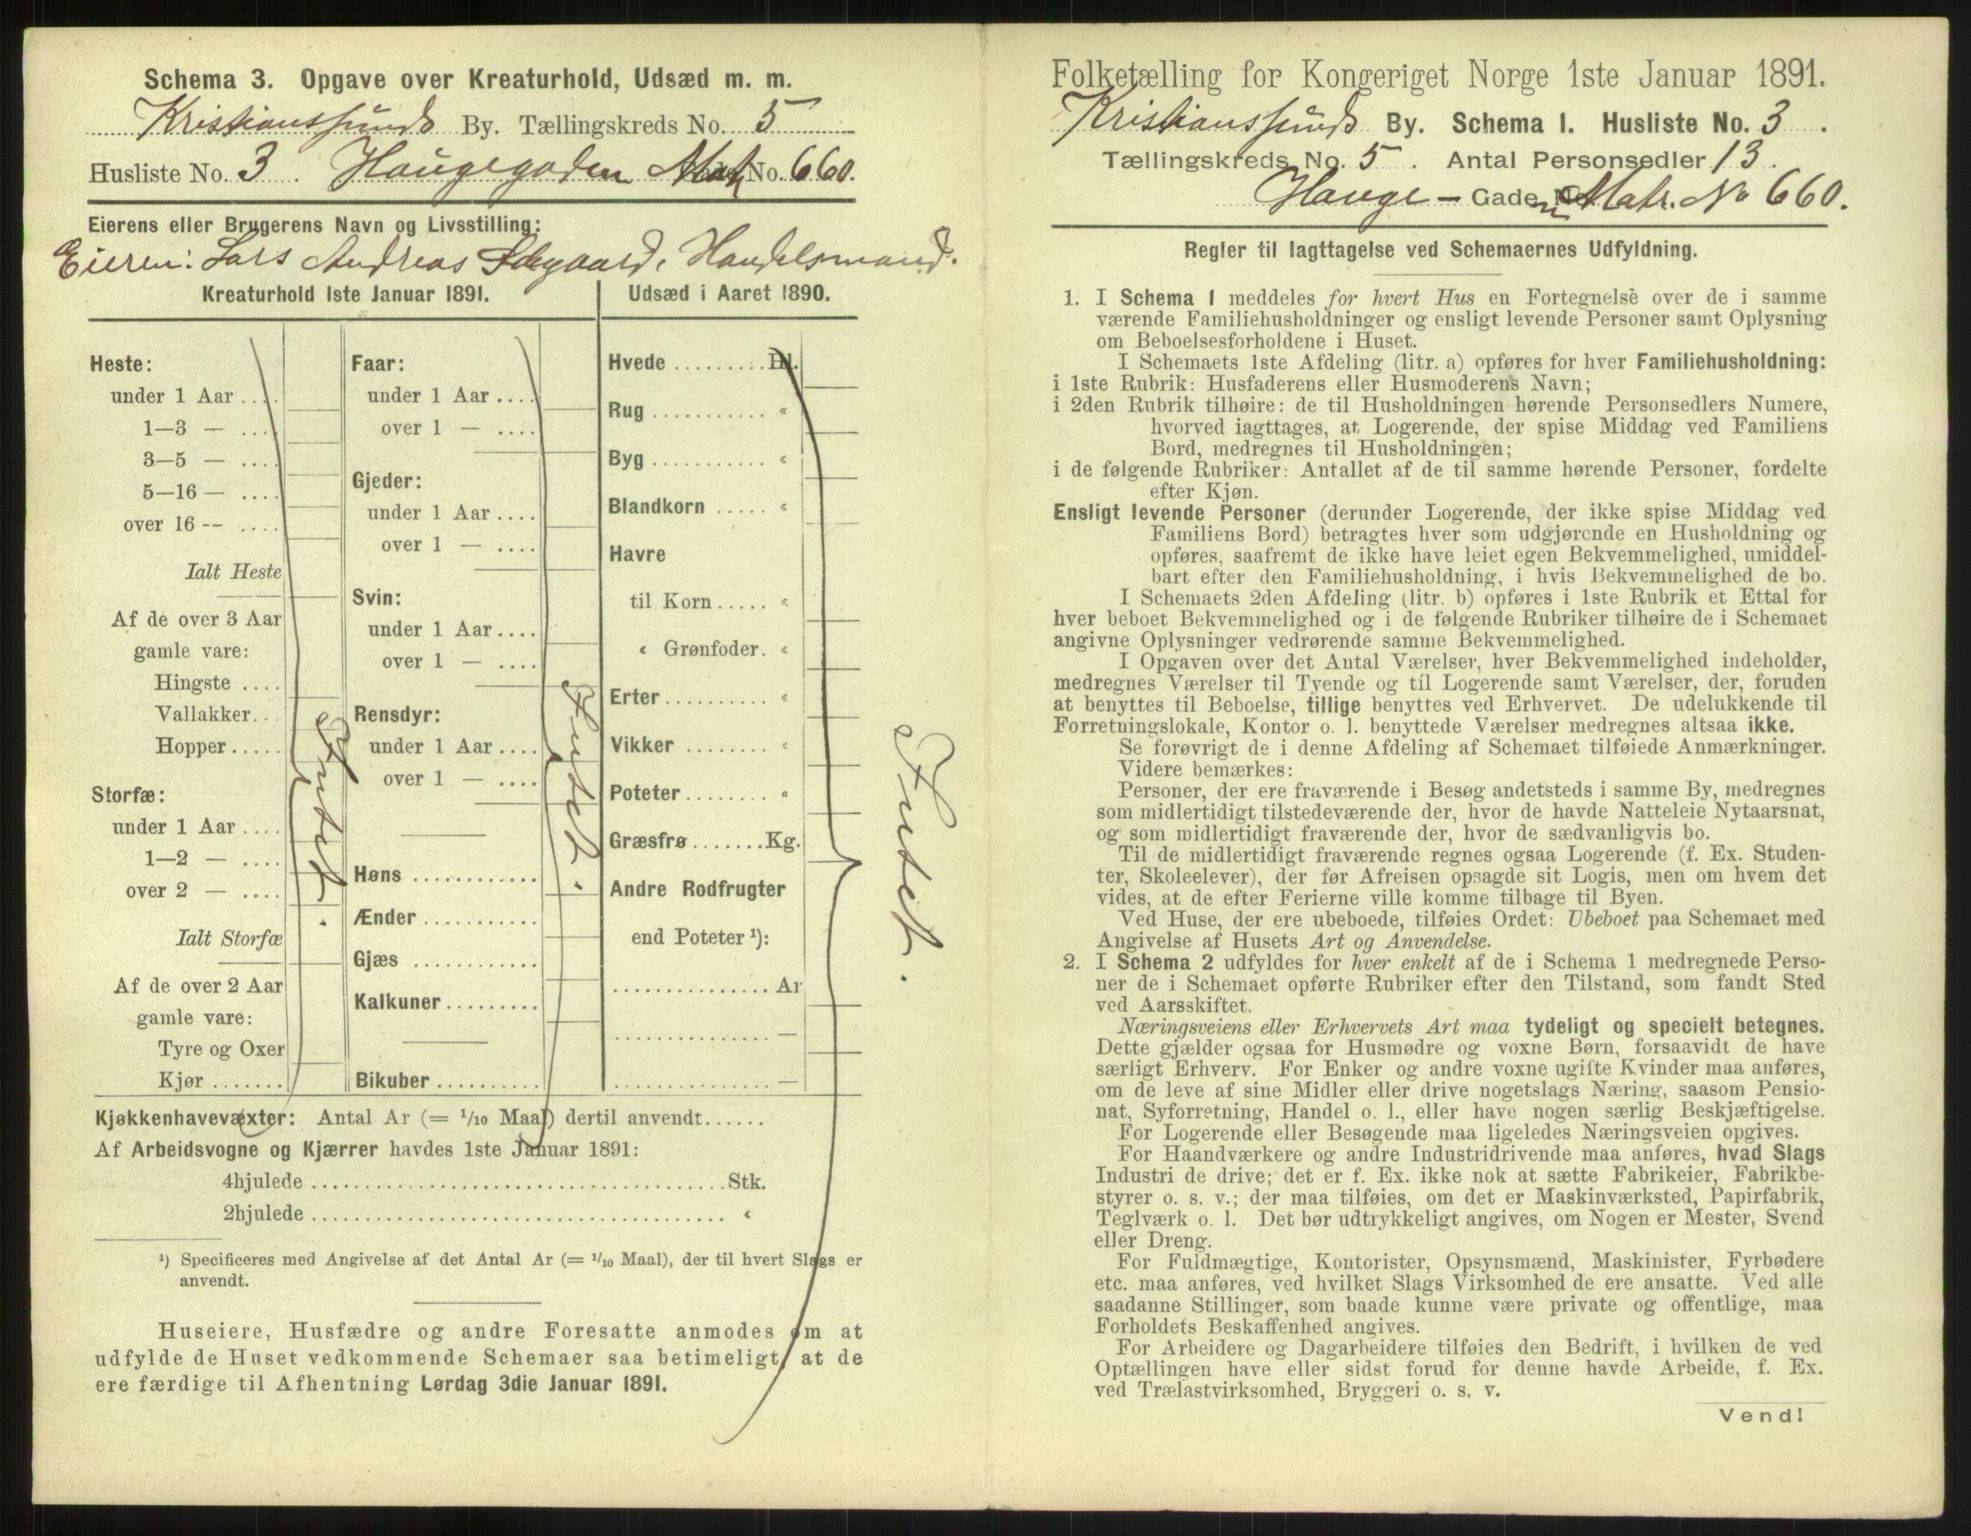 Schema 3. Opgave over Kreaturhold, Udsæd m. m.
Kristianssunds By. Tællingskreds No. 5
Husliste No. 3. Haugegaden Mat. No. 660.
Eierens eller Brugerens Navn og Livsstilling:
Eieren: Lars Andreas Ødegaard, Handelsmand.
Kreaturhold 1ste Januar 1891.
Heste:
under 1 Aar ....
1—3 — ....
3—5 — ....
5—16 — ....
over 16 -- ....
Ialt Heste
Af de over 3 Aar
gamle vare:
Hingste ....
Vallakker...
Hopper .....
Storfæ:
under 1 Aar ....
1—2 — ....
over 2 — ....
Ialt Storfæ
Af de over 2 Aar
gamle vare:
Tyre og Oxer
Kjør .......
Intet.
Faar:
under 1 Aar ....
over 1 — ....
Gjeder:
under 1 Aar ....
over 1 — ....
Svin:
under 1 Aar ....
over 1 — ....
Rensdyr:
under 1 Aar ....
over 1 — ....
Høns ............
Ænder ...........
Gjæs ............
Kalkuner.........
Bikuber ..........
Intet.
Udsæd i Aaret 1890.
Hvede ......... Hl.
Rug ........... «
Byg ........... «
Blandkorn ..... «
Havre
til Korn ..... «
« Grønfoder. «
Erter ......... «
Vikker ........ «
Poteter........ «
Græsfrø .......Kg.
Andre Rodfrugter
end Poteter ¹):
............... Ar
............... —
............... —
Intet.
Kjøkkenhavevæxter: Antal Ar (= 1/10 Maal) dertil anvendt......
Af Arbeidsvogne og Kjærrer havdes 1ste Januar 1891:
4hjulede ........................................Stk.
2hjulede ........................................ «
¹) Specificeres med Angivelse af det Antal Ar (= 1/10 Maal), der til hvert Slags er
anvendt.
Huseiere, Husfædre og andre Foresatte anmodes om at
udfylde de Huset vedkommende Schemaer saa betimeligt, at de
ere færdige til Afhentning Lørdag 3die Januar 1891.
Folketælling for Kongeriget Norge 1ste Januar 1891.
Kristianssunds By. Schema 1. Husliste No. 3.
Tællingskreds No. 5. Antal Personsedler 13.
Hauge - Gaden Matr. No 660.
Regler til Iagttagelse ved Schemaernes Udfyldning.
1. I Schema 1 meddeles for hvert Hus en Fortegnelse over de i samme
værende Familiehusholdninger og ensligt levende Personer samt Oplysning
om Beboelsesforholdene i Huset.
I Schemaets 1ste Afdeling (litr. a) opføres for hver Familiehusholdning:
i 1ste Rubrik: Husfaderens eller Husmoderens Navn;
i 2den Rubrik tilhøire: de til Husholdningen hørende Personsedlers Numere,
hvorved iagttages, at Logerende, der spise Middag ved Familiens
Bord, medregnes til Husholdningen;
i de følgende Rubriker: Antallet af de til samme hørende Personer, fordelte
efter Kjøn.
Ensligt levende Personer (derunder Logerende, der ikke spise Middag ved
Familiens Bord) betragtes hver som udgjørende en Husholdning og
opføres, saafremt de ikke have leiet egen Bekvemmelighed, umiddel-
bart efter den Familiehusholdning, i hvis Bekvemmelighed de bo.
I Schemaets 2den Afdeling (litr. b) opføres i 1ste Rubrik et Ettal for
hver beboet Bekvemmelighed og i de følgende Rubriker tilhøire de i Schemaet
angivne Oplysninger vedrørende samme Bekvemmelighed.
I Opgaven over det Antal Værelser, hver Bekvemmelighed indeholder,
medregnes Værelser til Tyende og til Logerende samt Værelser, der, foruden
at benyttes til Beboelse, tillige benyttes ved Erhvervet. De udelukkende til
Forretningslokale, Kontor o. l. benyttede Værelser medregnes altsaa ikke.
Se forøvrigt de i denne Afdeling af Schemaet tilføiede Anmærkninger.
Videre bemærkes:
Personer, der ere fraværende i Besøg andetsteds i samme By, medregnes
som midlertidigt tilstedeværende der, hvor de havde Natteleie Nytaarsnat,
og som midlertidigt fraværende der, hvor de sædvanligvis bo.
Til de midlertidigt fraværende regnes ogsaa Logerende (f. Ex. Studen-
ter, Skoleelever), der før Afreisen opsagde sit Logis, men om hvem det
vides, at de efter Ferierne ville komme tilbage til Byen.
Ved Huse, der ere ubeboede, tilføies Ordet: Ubeboet paa Schemaet med
Angivelse af Husets Art og Anvendelse.
2. I Schema 2 udfyldes for hver enkelt af de i Schema 1 medregnede Perso-
ner de i Schemaet opførte Rubriker efter den Tilstand, som fandt Sted
ved Aarsskiftet.
Næringsveiens eller Erhvervets Art maa tydeligt og specielt betegnes.
Dette gjælder ogsaa for Husmødre og voxne Børn, forsaavidt de have
særligt Erhverv. For Enker og andre voxne ugifte Kvinder maa anføres,
om de leve af sine Midler eller drive nogetslags Næring, saasom Pensio-
nat, Syforretning, Handel o. l., eller have nogen særlig Beskjæftigelse.
For Logerende eller Besøgende maa ligeledes Næringsveien opgives.
For Haandværkere og andre Industridrivende maa anføres, hvad Slags
Industri de drive; det er f. Ex. ikke nok at sætte Fabrikeier, Fabrikbe-
styrer o. s. v.; der maa tilføies, om det er Maskinværksted, Papirfabrik,
Teglværk o. l. Det bør udtrykkeligt angives, om Nogen er Mester, Svend
eller Dreng.
For Fuldmægtige, Kontorister, Opsynsmænd, Maskinister, Fyrbødere
etc. maa anføres, ved hvilket Slags Virksomhed de ere ansatte. Ved alle
saadanne Stillinger, som baade kunne være private og offentlige, maa
Forholdets Beskaffenhed angives.
For Arbeidere og Dagarbeidere tilføies den Bedrift, i hvilken de ved
Optællingen have eller sidst forud for denne havde Arbeide, f. Ex.
ved Trælastvirksomhed, Bryggeri o. s. v.
Vend!